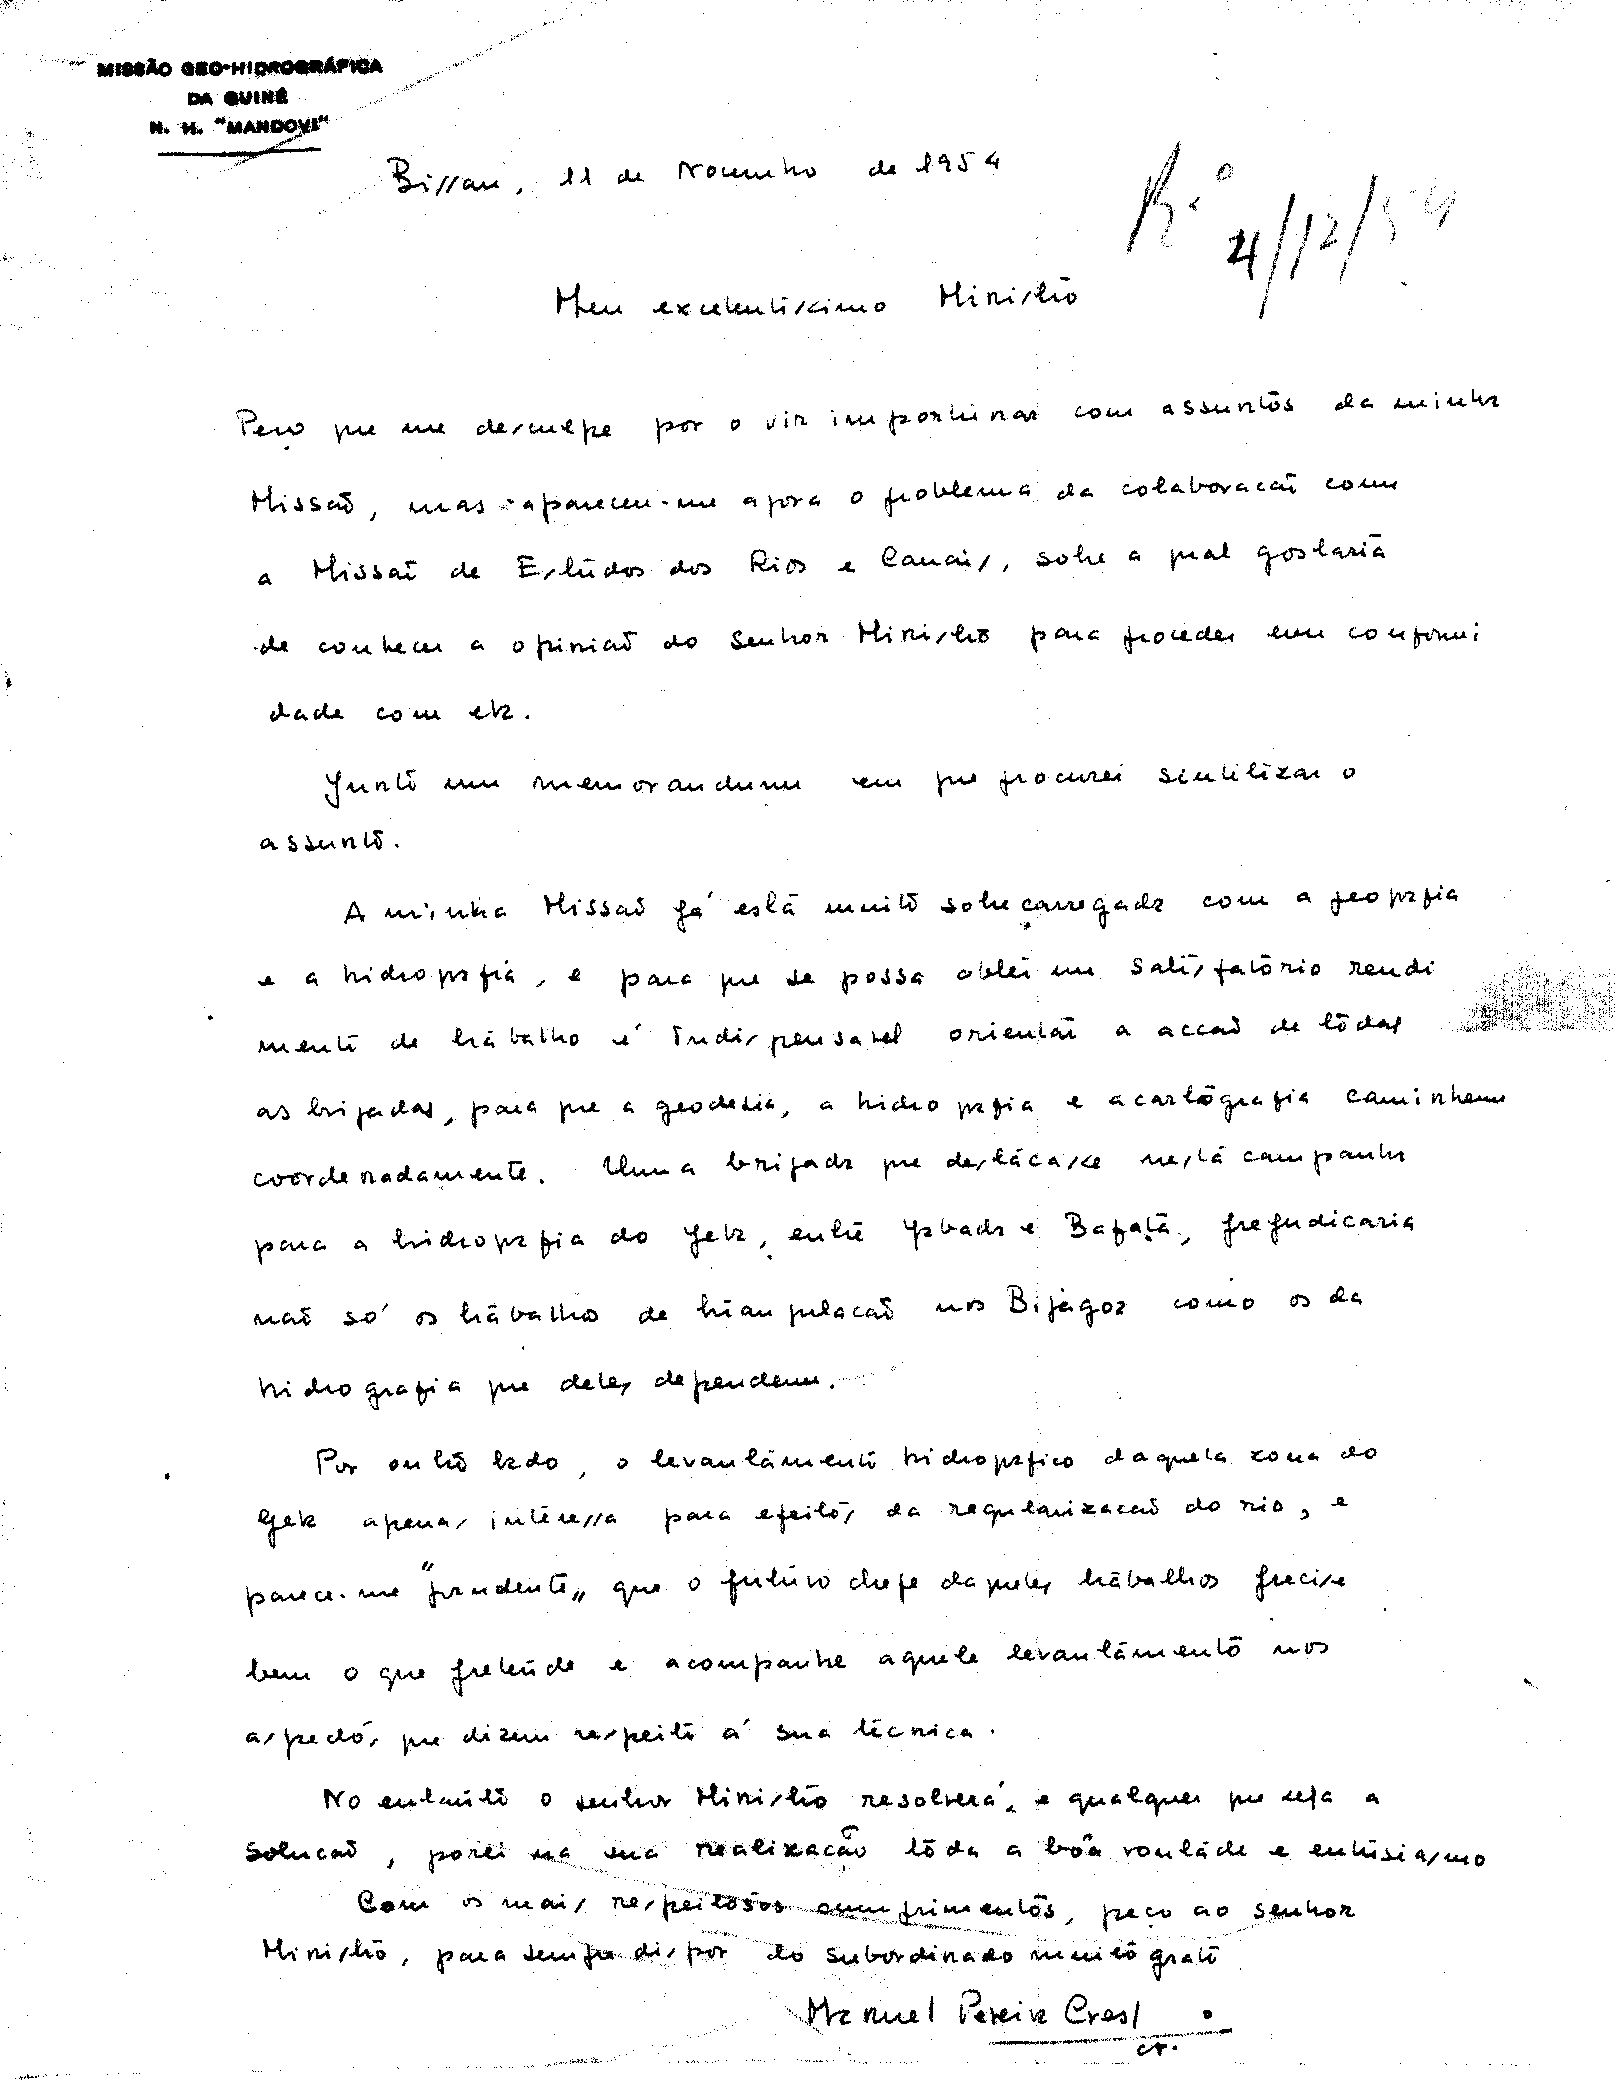 MISSÃO GEO-HIDROGRÁFICA
DA GUINÉ
N. H. "MANDOVI"
Bissau, 11 de Novembro de 1954
R.º 4/12/54
Meu excelentíssimo Ministro
Peço que me desculpe por o vir importunar com assuntos da minha
Missão, mas apareceu-me agora o problema da colaboração com
a Missão de Estudos dos Rios e Canais, sobre a qual gostaria
de conhecer a opinião do Senhor Ministro para proceder em conformi
dade com ela.
Junto um memorandum em que procurei sintilizar o
assunto.
A minha Missão já está muito sobrecarregada com a geografia
e a hidrografia, e para que se possa obter um satisfatório rendi
mento de trabalho é indispensavel orientar a acção de tôdas
as brigadas, para que a geodesia, a hidrografia e a cartografia caminhem
coordenadamente. Uma brigada que destacasse nesta campanha
para a hidrografia do Geba, entre Geba e Bafatá, prejudicaria
não só os trabalho de triangulação nos Bijagoz como os da
hidrografia que deles dependem.
Por outro lado, o levantamento hidrografico daquela zona do
Geba apenas interessa para efeitos da regularização do rio, e
parece-me "prudente" que o futuro chefe daqueles trabalhos precise
bem o que pretende e acompanhe aquele levantamento nos
aspectos que dizem respeito á sua técnica.
No entanto o senhor Ministro resolverá, e qualquer que seja a
solução, porei na sua realização tôda a bôa vontade e entusiasmo
Com os mais respeitosos cumprimentos, peço ao senhor
Ministro, para sempre dispor do subordinado muito grato
Manuel Pereira Crespo